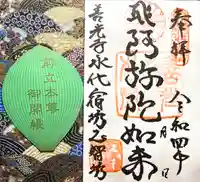 奉拝
令和四年 月 日
飛阿弥陀如来
善光寺永代宿坊正智坊
前立本尊
御開帳